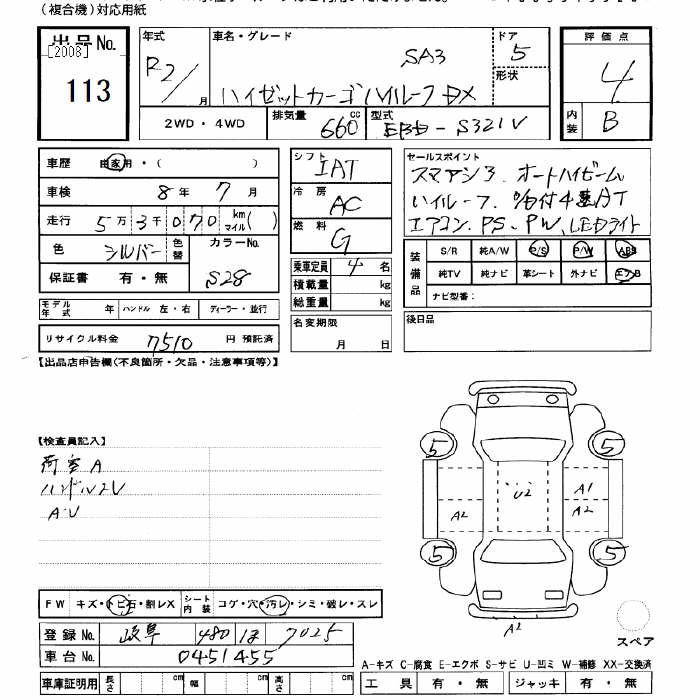 (複合機)対応用紙
出品No. 年式 車名・グレード SA3 ドア 5 評価点
[2008]
113 R2/ 月 ハイゼットカーゴ ハイルーフ DX 形状 4
2WD・4WD 排気量 660 cc 型式 EBD-S321V 内装 B
車歴 自家用・( ) シフト IAT セールスポイント
車検 8年 7月 冷房 AC スマアシ3. オートハイビーム
走行 5万3千070 km マイル( ) ハイルーフ.
色 シルバー 色替 カラーNo. 燃料 G エアコン. PS. PW. LEDライト
保証書 有・無 S28 乗車定員 4名 装備品 S/R 純A/W P/S P/W ABS
積載量 kg 純TV 純ナビ 革シート 外ナビ エアB
モデル年式 年 ハンドル 左・右 ディーラー・並行 総重量 kg ナビ型番:
リサイクル料金 7510 円 預託済 名変期限 月 日 後日品
【出品店申告欄(不良箇所・欠品・注意事項等)】
【検査員記入】
荷室A
ハンドルスレ
A・U
5 5
U2 A1
A2 A2
5 5
A2
FW キズ・トビ石・割レX シート内装 コゲ・穴・汚レ・シミ・破レ・スレ
登録No. 岐阜 480 は 7025
スペア
車台No. 0451455
A-キズ C-腐食 E-エクボ S-サビ U-凹ミ W-補修 XX-交換済
車庫証明用 長さ cm 幅 cm 高さ cm 工具 有・無 ジャッキ 有・無